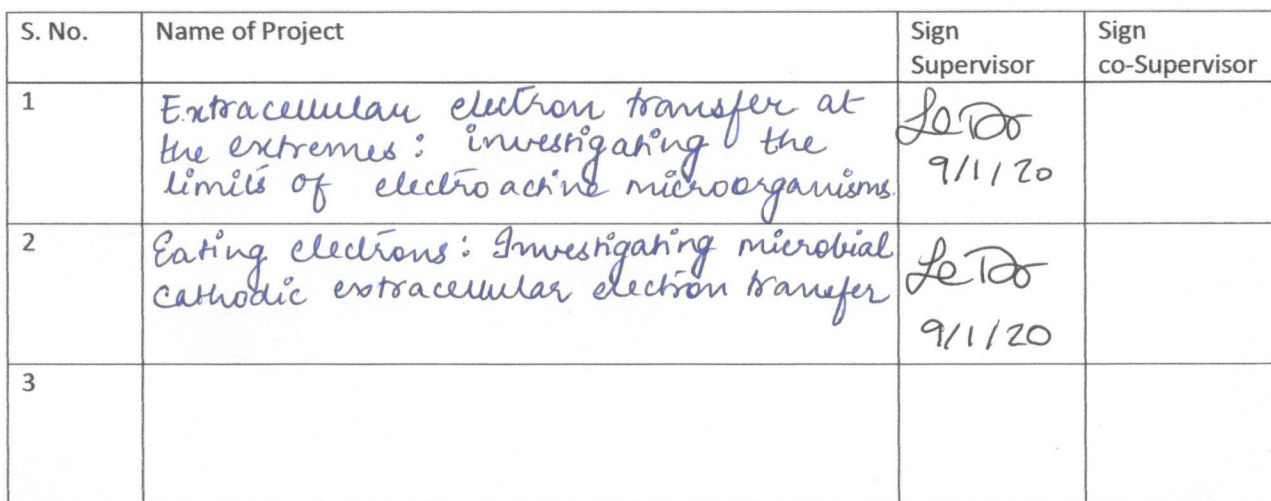 S. No. Name of Project Sign Supervisor Sign co-Supervisor
1 Extracellular electron transfer at
the extremes: investigating the
limits of electroactive microorganisms.
9/1/20
2 Eating electrons: Investigating microbial
cathodic extracellular electron transfer
9/1/20
3